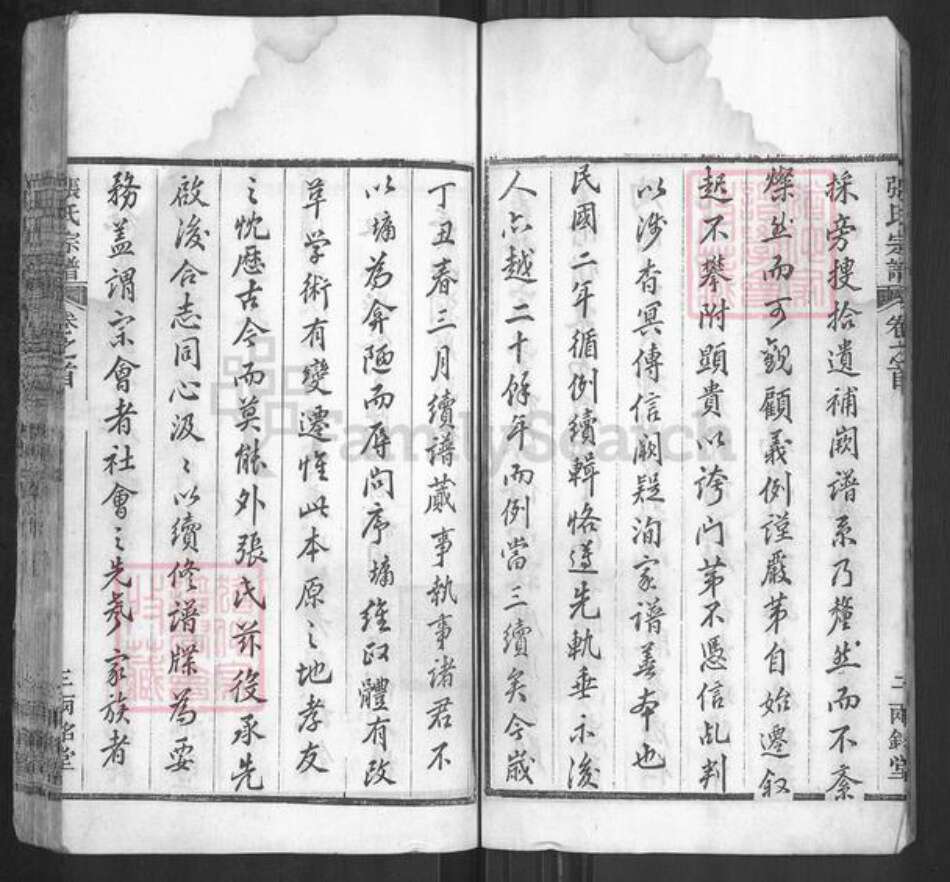 張氏宗譜 卷之首 二 兩銘堂
採旁搜拾遺補闕譜系乃釐然而不紊
燦然而可觀顧義例謹嚴第自始遷叙
起不攀附顯貴以誇門第不憑信乩判
以涉杳冥傳信闕疑洵家譜善本也
民國二年循例續輯恪遵先軌垂示後
人亦越二十餘年而例當三續矣今歲
丁丑春三月續譜蕆事執事諸君不
以墉為弇陋而辱問序墉維政體有改
革學術有變遷惟此本原之地孝友
之忱歷古今而莫能外張氏茲役承先
啟後合志同心汲〻以續修譜牒為要
務蓋謂宗會者社會之先務家族者
張氏宗譜 卷之首 三 兩銘堂
FamilySearch